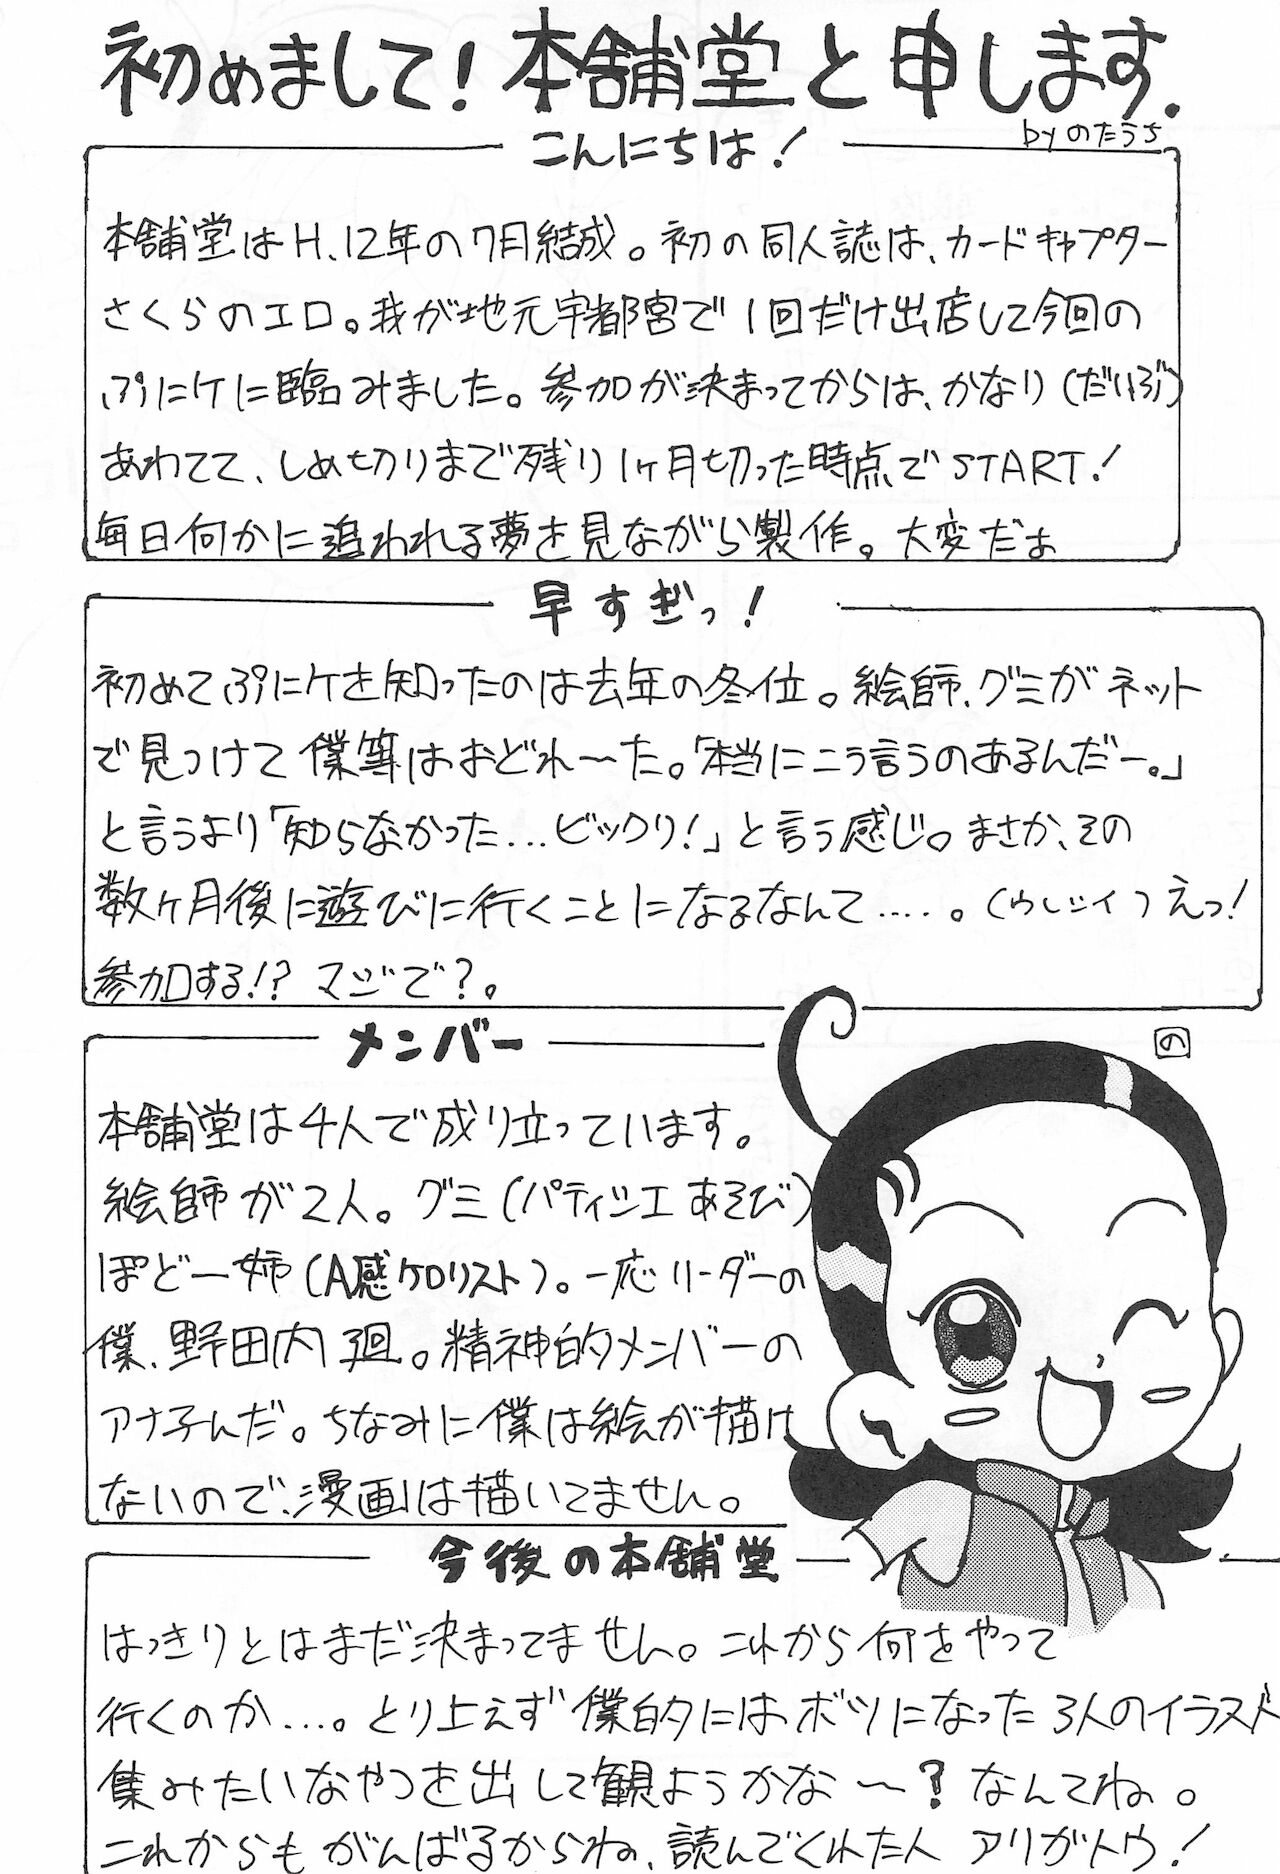 初めまして！本舗堂と申します．
byのたうち
こんにちは！
本舗堂はH、12年の7月結成。初の同人誌は、カードキャプター
さくらのエロ。我が地元宇都宮で1回だけ出店して今回の
ぷにケに臨みました。参加が決まってからは、かなり（だいぶ）
あわてて、しめ切りまで残り1ヶ月切った時点でSTART！
毎日何かに追われる夢を見ながら製作。大変だぁ
早すぎっ！
初めてぷにケを知ったのは去年の冬位。絵師、グミがネット
で見つけて僕等はおどれ〜た。「本当にこう言うのあるんだー。」
と言うより「知らなかった…ビックリ！」と言う感じ。まさか、その
数ヶ月後に遊びに行くことになるなんて….。（ウレシイ）えっ！
参加する!？マジで？。
メンバー
の
本舗堂は4人で成り立っています。
絵師が2人。グミ（パティシエあそび）
ぽどー姉（A感ケロリスト）。一応リーダーの
僕、野田内廻。精神的メンバーの
アナ子んだ。ちなみに僕は絵が描け
ないので、漫画は描いてません。
今後の本舗堂
はっきりとはまだ決まってません。これから何をやって
行くのか…。とり上えず僕的にはボツになった3人のイラスト
集みたいなやつを出して観ようかな〜？なんてね。
これからもがんばるからね、読んでくれた人アリガトウ！